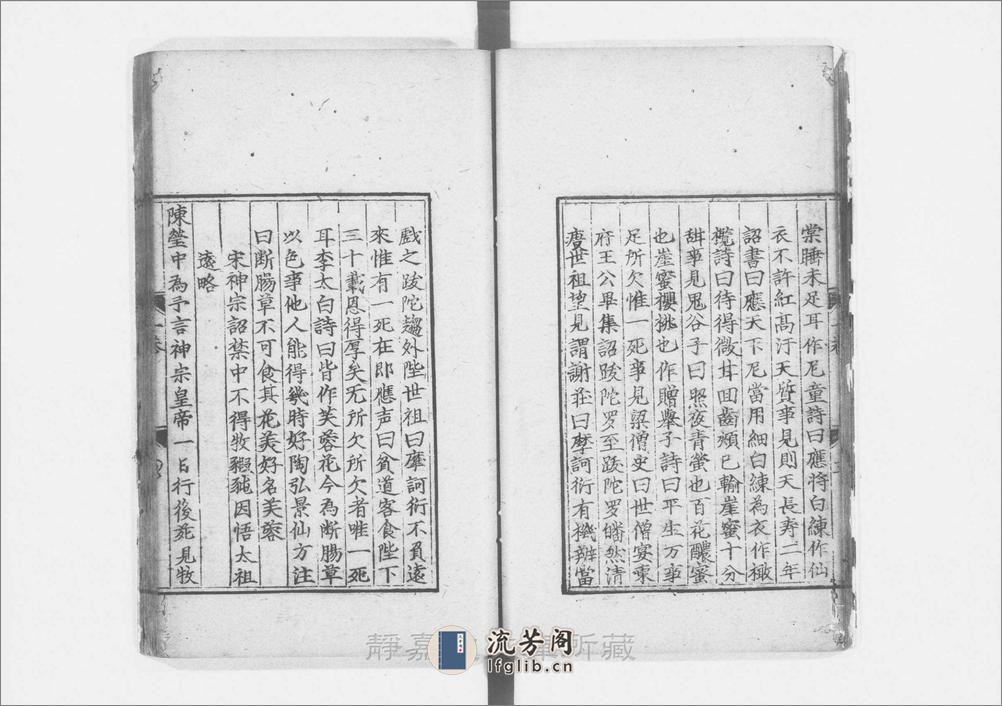 棠睡未足耳作尼童詩曰應将白練作仙
衣不許紅膏汙天質事見則天長壽二年
詔書曰應天下尼當用細白練為衣作橄
欖詩曰待得微甘回齒頰已輸崖蜜十分
甜事見鬼谷子曰照夜青螢也百花釀蜜
也崖蜜櫻桃也作贈舉子詩曰平生万事
足所欠惟一死事見梁僧史曰世僧宴東
府王公畢集詔跋陀罗至跋陀罗皤然清
癯世祖望見謂謝莊曰摩訶衍有機辨當
戲之跋陀趨外陛世祖曰摩訶衍不負遠
來惟有一死在即應声曰貧道客食陛下
三十載恩得厚矣无所欠所欠者唯一死
耳李太白詩曰昔作芙蓉花今為断腸草
以色事他人能得幾時好陶弘景仙方注
曰断腸草不可食其花美好名芙蓉
宋神宗詔禁中不得牧豭豘因悟太祖
遠略
陳瑩中為予言神宗皇帝一日行後苑見牧
一卷
靜嘉 所藏
流芳阁
lfglib.cn